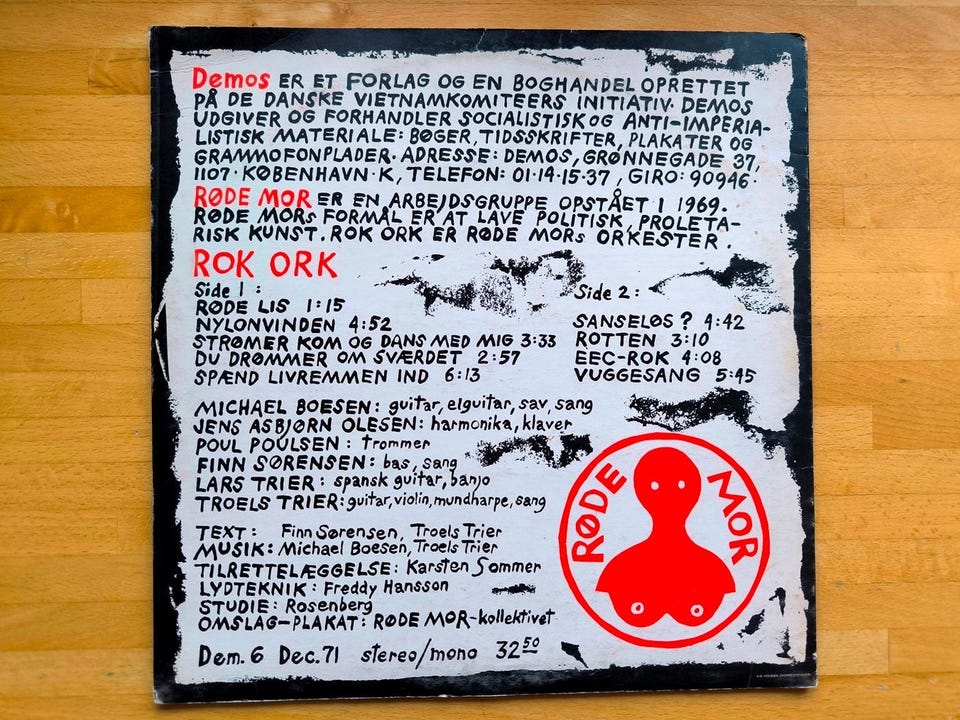 Demos ER ET FORLAG OG EN BOGHANDEL OPRETTET
PÅ DE DANSKE VIETNAMKOMITEERS INITIATIV. DEMOS
UDGIVER OG FORHANDLER SOCIALISTISK OG ANTI-IMPERIA-
LISTISK MATERIALE: BØGER, TIDSSKRIFTER, PLAKATER OG
GRAMMOFONPLADER. ADRESSE: DEMOS, GRØNNEGADE 37,
1107 · KØBENHAVN · K, TELEFON: 01·14·15·37, GIRO: 90946 ·
RØDE MOR ER EN ARBEJDSGRUPPE OPSTÅET I 1969.
RØDE MORs FORMÅL ER AT LAVE POLITISK, PROLETA-
RISK KUNST. ROK ORK ER RØDE MORs ORKESTER.
ROK ORK
Side 1:
RØDE LIS 1:15
NYLONVINDEN 4:52
STRØMER KOM OG DANS MED MIG 3:33
DU DRØMMER OM SVÆRDET 2:57
SPÆND LIVREMMEN IND 6:13
Side 2:
SANSELØS? 4:42
ROTTEN 3:10
EEC-ROK 4:08
VUGGESANG 5:45
MICHAEL BOESEN: guitar, elguitar, sav, sang
JENS ASBJØRN OLESEN: harmonika, klaver
POUL POULSEN: trommer
FINN SØRENSEN: bas, sang
LARS TRIER: spansk guitar, banjo
TROELS TRIER: guitar, violin, mundharpe, sang
TEXT: Finn Sørensen, Troels Trier
MUSIK: Michael Boesen, Troels Trier
TILRETTELÆGGELSE: Karsten Sommer
LYDTEKNIK: Freddy Hansson
STUDIE: Rosenberg
OMSLAG-PLAKAT: RØDE MOR-kollektivet
Dem. 6 Dec. 71 stereo/mono 32 50
RØDE MOR